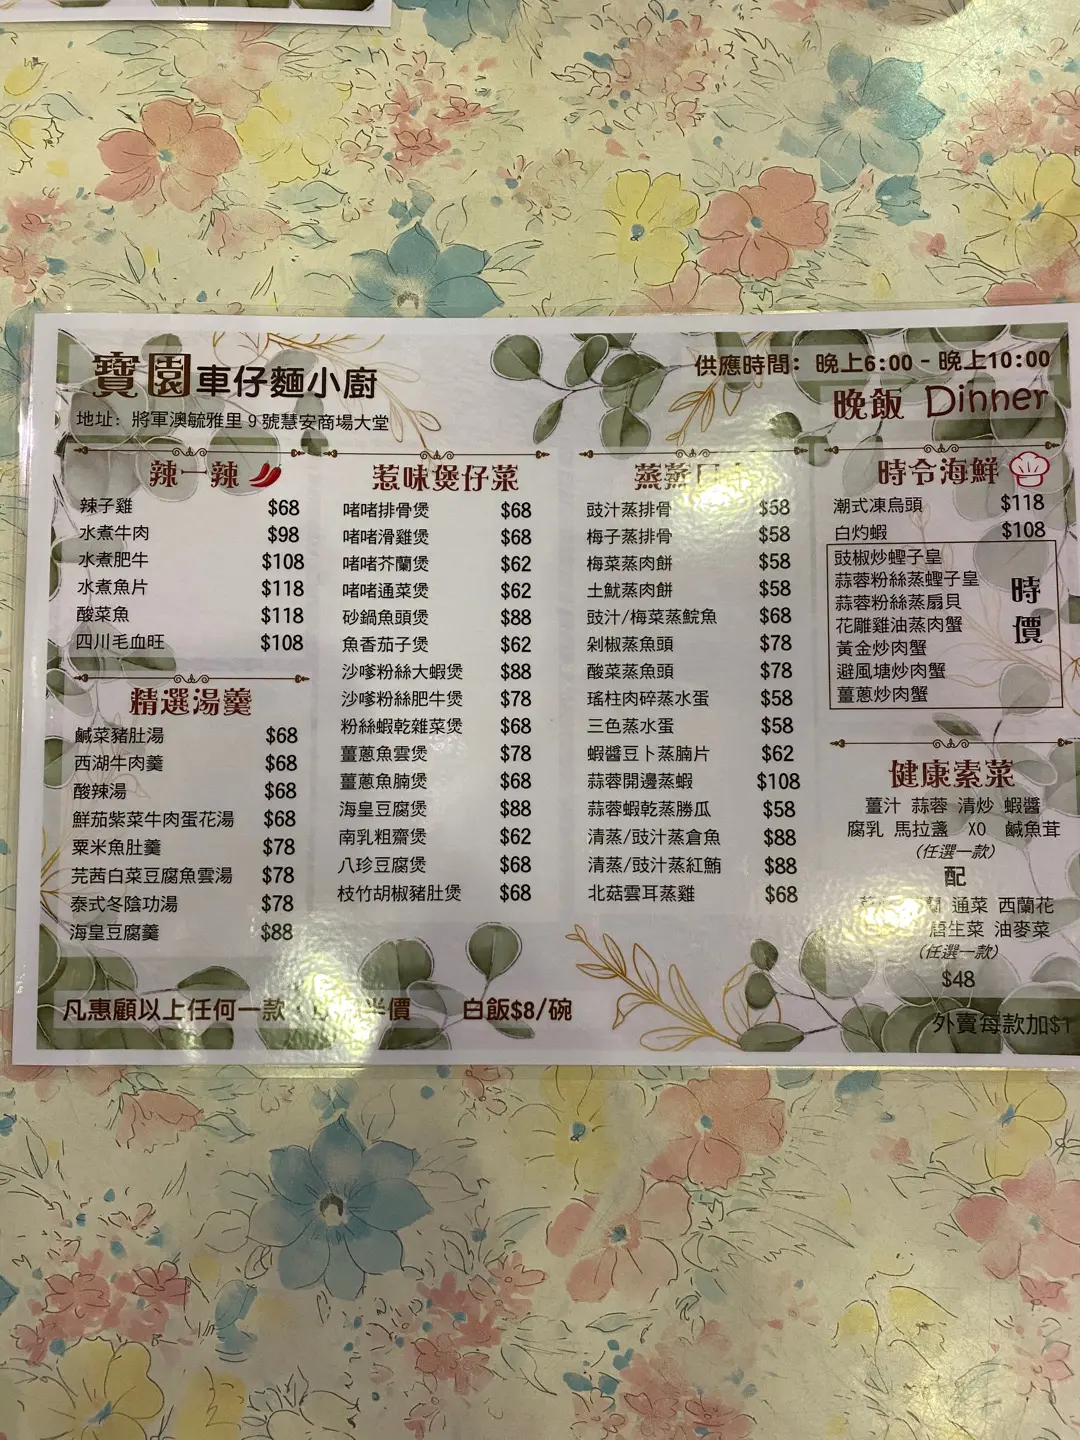 寶園車仔麵小廚
地址：將軍澳毓雅里9號慧安商場大堂
供應時間：晚上6:00 - 晚上10:00
晚飯 Dinner
辣一辣
辣子雞 $68
水煮牛肉 $98
水煮肥牛 $108
水煮魚片 $118
酸菜魚 $118
四川毛血旺 $108
精選湯羹
鹹菜豬肚湯 $68
西湖牛肉羹 $68
酸辣湯 $68
鮮茄紫菜牛肉蛋花湯 $68
粟米魚肚羹 $78
芫茜白菜豆腐魚雲湯 $78
泰式冬陰功湯 $78
海皇豆腐羹 $88
惹味煲仔菜
啫啫排骨煲 $68
啫啫滑雞煲 $68
啫啫芥蘭煲 $62
啫啫通菜煲 $62
砂鍋魚頭煲 $88
魚香茄子煲 $62
沙嗲粉絲大蝦煲 $88
沙嗲粉絲肥牛煲 $78
粉絲蝦乾雜菜煲 $68
薑蔥魚雲煲 $78
薑蔥魚腩煲 $68
海皇豆腐煲 $88
南乳粗齋煲 $62
八珍豆腐煲 $68
枝竹胡椒豬肚煲 $68
蒸蒸日
豉汁蒸排骨 $58
梅子蒸排骨 $58
梅菜蒸肉餅 $58
土魷蒸肉餅 $58
豉汁/梅菜蒸鯇魚 $68
剁椒蒸魚頭 $78
酸菜蒸魚頭 $78
瑤柱肉碎蒸水蛋 $58
三色蒸水蛋 $58
蝦醬豆卜蒸腩片 $62
蒜蓉開邊蒸蝦 $108
蒜蓉蝦乾蒸勝瓜 $58
清蒸/豉汁蒸倉魚 $88
清蒸/豉汁蒸紅鮋 $88
北菇雲耳蒸雞 $68
時令海鮮
潮式凍烏頭 $118
白灼蝦 $108
豉椒炒蟶子皇
蒜蓉粉絲蒸蟶子皇
蒜蓉粉絲蒸扇貝
花雕雞油蒸肉蟹
黃金炒肉蟹
避風塘炒肉蟹
薑蔥炒肉蟹
時價
健康素菜
薑汁 蒜蓉 清炒 蝦醬
腐乳 馬拉盞 XO 鹹魚茸
(任選一款)
配
通菜 西蘭花
唐生菜 油麥菜
(任選一款)
$48
凡惠顧以上任何一款，半價
白飯$8/碗
外賣每款加$1